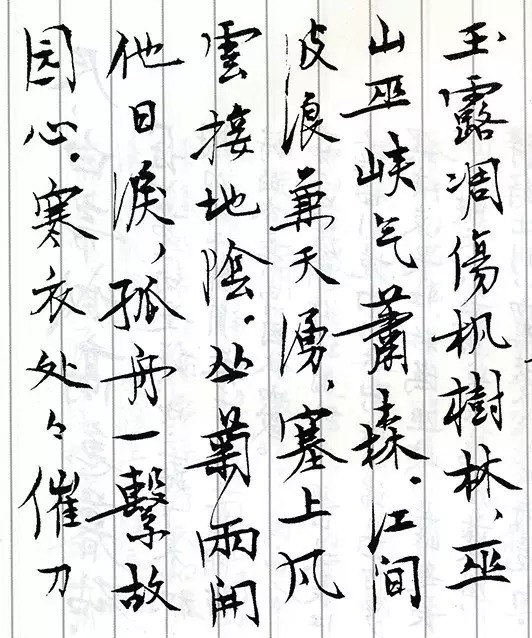 玉露凋傷枫樹林、巫
山巫峡气蕭森.江间
波浪兼天湧,塞上风
雲接地陰.丛菊兩開
他日淚,孤舟一繫故
园心.寒衣处々催刀